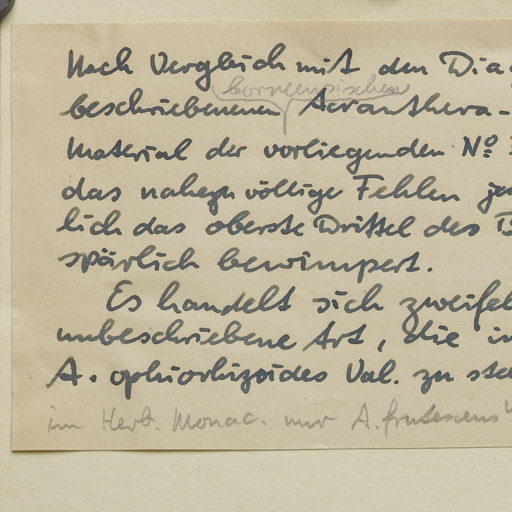 Nach Vergleich mit den Dia
borneensischen
beschriebenen Acranthera-
Material der vorliegenden Nº
das nahezu völlige Fehlen
lich das oberste Drittel des B
spärlich bewimpert.
Es handelt sich zweifel
unbeschriebene Art, die in
A. ophiorhizoides Val. zu ste
im Herb. Monac. nur A. frutescens